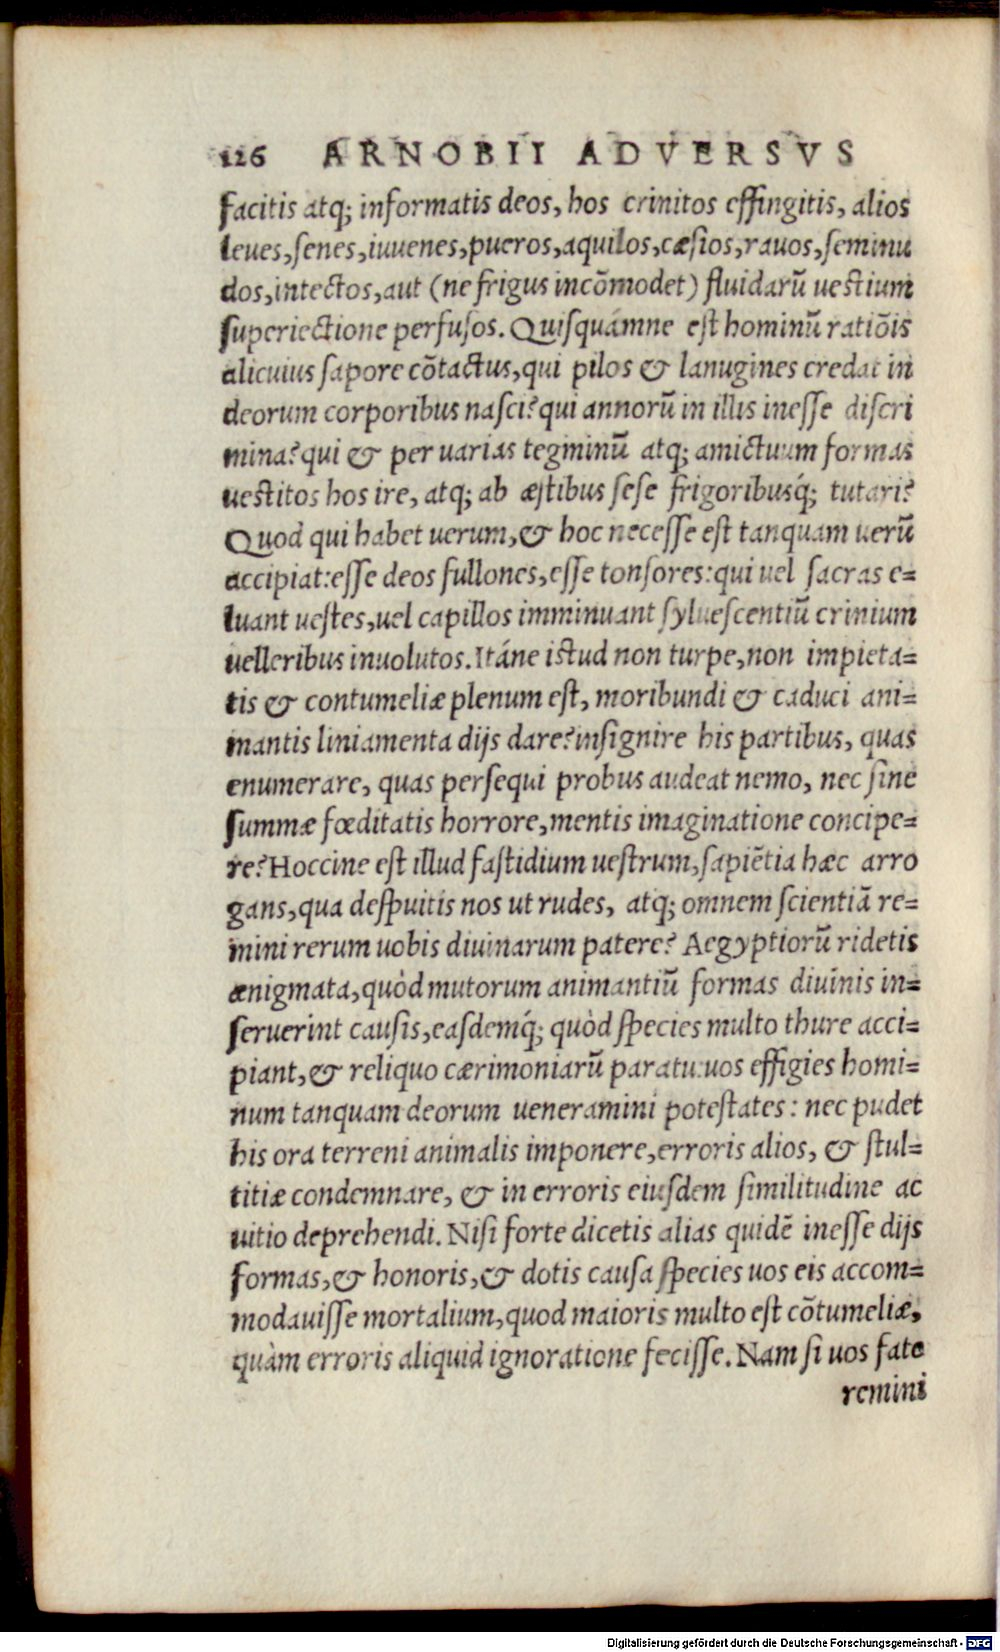 126 ARNOBII ADVERSVS
facitis atq; informatis deos, hos crinitos effingitis, alios
leues, senes, iuuenes, pueros, aquilos, cæsios, rauos, seminu
dos, intectos, aut (ne frigus incõmodet) fluidarũ uestium
superiectione perfusos. Quisquámne est hominũ ratiõis
alicuius sapore cõtactus, qui pilos & lanugines credat in
deorum corporibus nasci? qui annorũ in illis inesse discri
mina? qui & per uarias tegminũ atq; amictuum formas
uestitos hos ire, atq; ab æstibus sese frigoribusq́; tutari?
Quod qui habet uerum, & hoc necesse est tanquam uerũ
accipiat: esse deos fullones, esse tonsores: qui uel sacras e=
luant uestes, uel capillos imminuant syluescentiũ crinium
uelleribus inuolutos. Itáne istud non turpe, non impieta=
tis & contumeliæ plenum est, moribundi & caduci ani=
mantis liniamenta dijs dare? insignire his partibus, quas
enumerare, quas persequi probus audeat nemo, nec sine
summæ fœditatis horrore, mentis imaginatione concipe=
re? Hoccine est illud fastidium uestrum, sapiẽtia hæc arro
gans, qua despuitis nos ut rudes, atq; omnem scientiã re=
mini rerum uobis diuinarum patere? Aegyptiorũ ridetis
ænigmata, quòd mutorum animantiũ formas diuinis in=
seruerint causis, easdemq́; quòd species multo thure acci=
piant, & reliquo cærimoniarũ paratu: uos effigies homi=
num tanquam deorum ueneramini potestates: nec pudet
his ora terreni animalis imponere, erroris alios, & stul=
titiæ condemnare, & in erroris eiusdem similitudine ac
uitio deprehendi. Nisi forte dicetis alias quidẽ inesse dijs
formas, & honoris, & dotis causa species uos eis accom=
modauisse mortalium, quod maioris multo est cõtumeliæ,
quàm erroris aliquid ignoratione fecisse. Nam si uos fate
remini
Digitalisierung gefördert durch die Deutsche Forschungsgemeinschaft - DFG